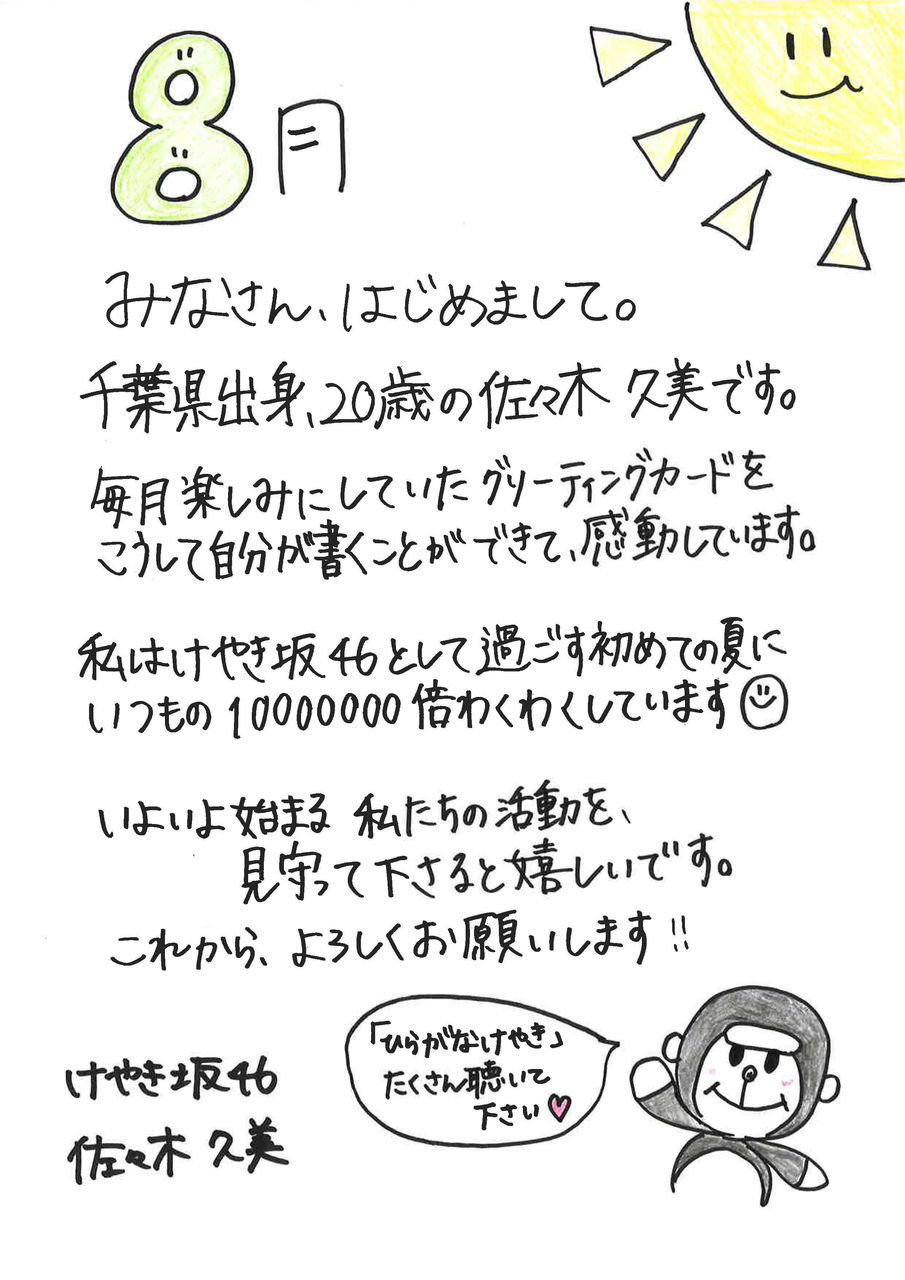 8月
みなさん、はじめまして。
千葉県出身、20歳の佐々木 久美です。
毎月楽しみにしていたグリーティングカードを
こうして自分が書くことができて、感動しています。
私はけやき坂46として過ごす初めての夏に
いつもの10000000倍わくわくしています
いよいよ始まる 私たちの活動を、
見守って下さると嬉しいです。
これから、よろしくお願いします!!
「ひらがなけやき」
たくさん聴いて
下さい♥
けやき坂46
佐々木 久美